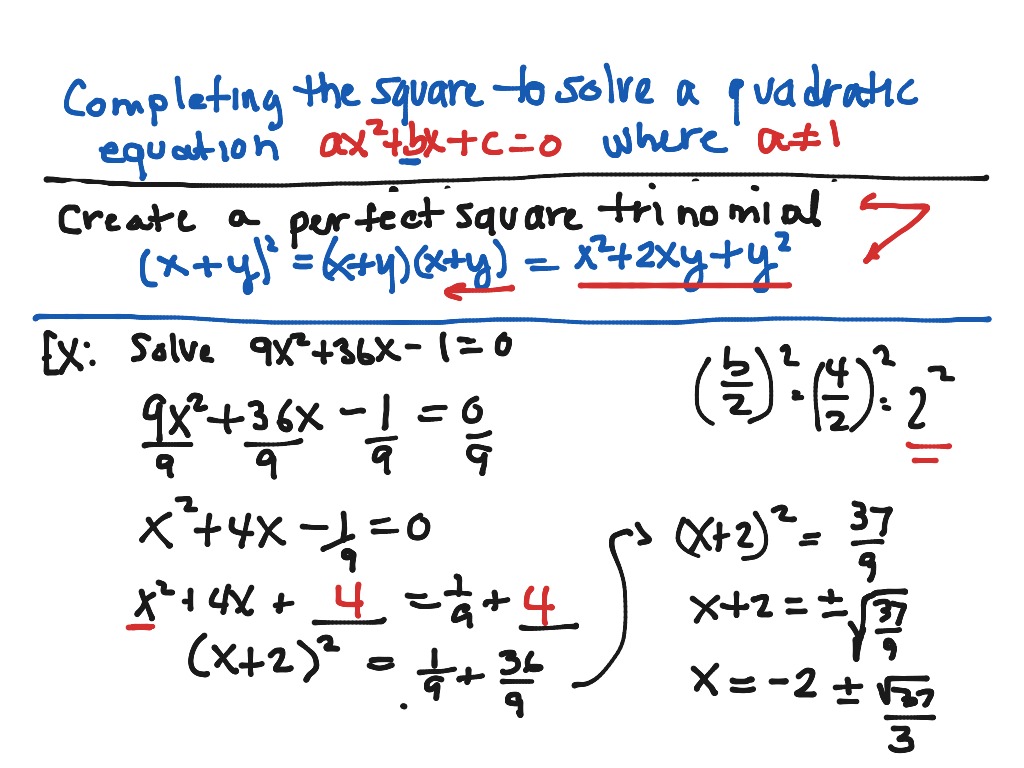 Completing the square to solve a quadratic
equation ax²+bx+c=0 where a≠1
Create a perfect square trinomial
(x+y)² = (x+y)(x+y) = x²+2xy+y²
Ex: Solve 9x²+36x-1=0
9x²/9 + 36x/9 - 1/9 = 0/9
x²+4x-1/9=0
x²+4x+4 = 1/9+4
(x+2)² = 1/9 + 36/9
(b/2)² = (4/2)² = 2²
(x+2)² = 37/9
x+2 = ±√(37/9)
x = -2 ± √37/3